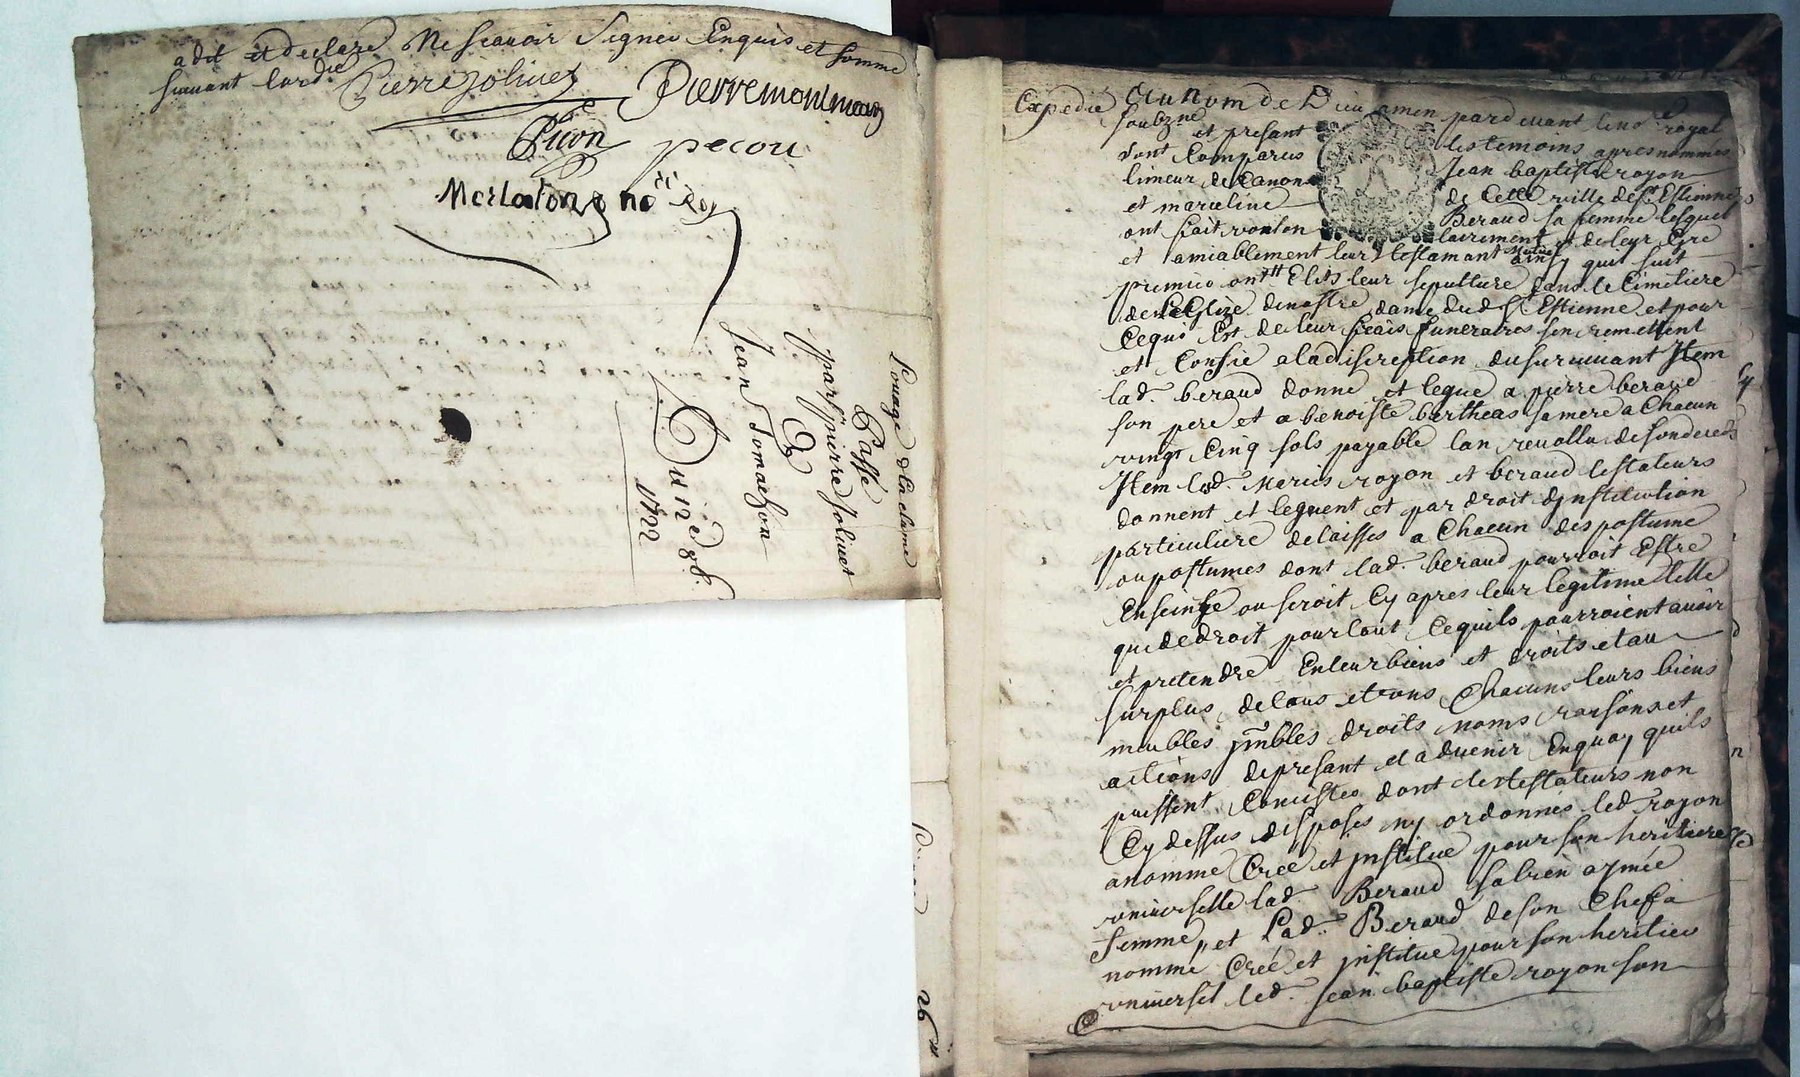 a dit et declaré Ne scavoir Signer Enquis et sommé
suivant lord.ce Pierre Jolivet
Pierre
pecou
Merlaton no.re Roy
Louage
Passé
par S.r pierre Jolivet
A
Jean Tomachon
Du 12e 8b.
1722
Expedié Au Nom de Dieu amen pardevant le no.re royal
soubz.né et presant les temoins apres nommés
sont Comparus Jean baptiste royon
limeur de Canon de Cette ville de S.t Estienne
et marceline Beraud sa femme lesquels
ont fait
et amiablement leur testamant mutuel ainsy que suit
premier ont Elits leur sepulture dans le Cimetiere
de lEglize de nostre dame dud. S.t Estienne et pour
Cequi Est de leur frais funeraires sen remettent
et Confie a la discreption du survivant Item
lad. beraud donne et legue a pierre beraud
son pere et a benoiste bertheas sa mere a Chacun
vingt Cinq sols payable lan revollu de son deceds
Item lesd. Mariés royon et beraud testateurs
donnent et leguent et par droit dinstitution
particuliere delaisses a Chacun des postume
ou postumes dont lad. beraud pourroit Estre
Enseinte ou seroit Cy apres leur legitime telle
que de droit pour tout Cequils pourroient avoir
et pretendre En leur biens et droits et au
surplus de tous et uns Chacuns leurs biens
meubles jmbles droits noms raisons et
actions de presant et advenir Enquoy quils
puissent Concister dont les testateurs non
Cy dessus disposés ny ordonnés led. royon
a nommé Creé et jnstitué pour son heritiere
universelle lad. Beraud sa bien aymée
femme, et Lad. Beraud de son Chef a
nommé Creé et jnstitué pour son heritier
universel led. jean baptiste royon son